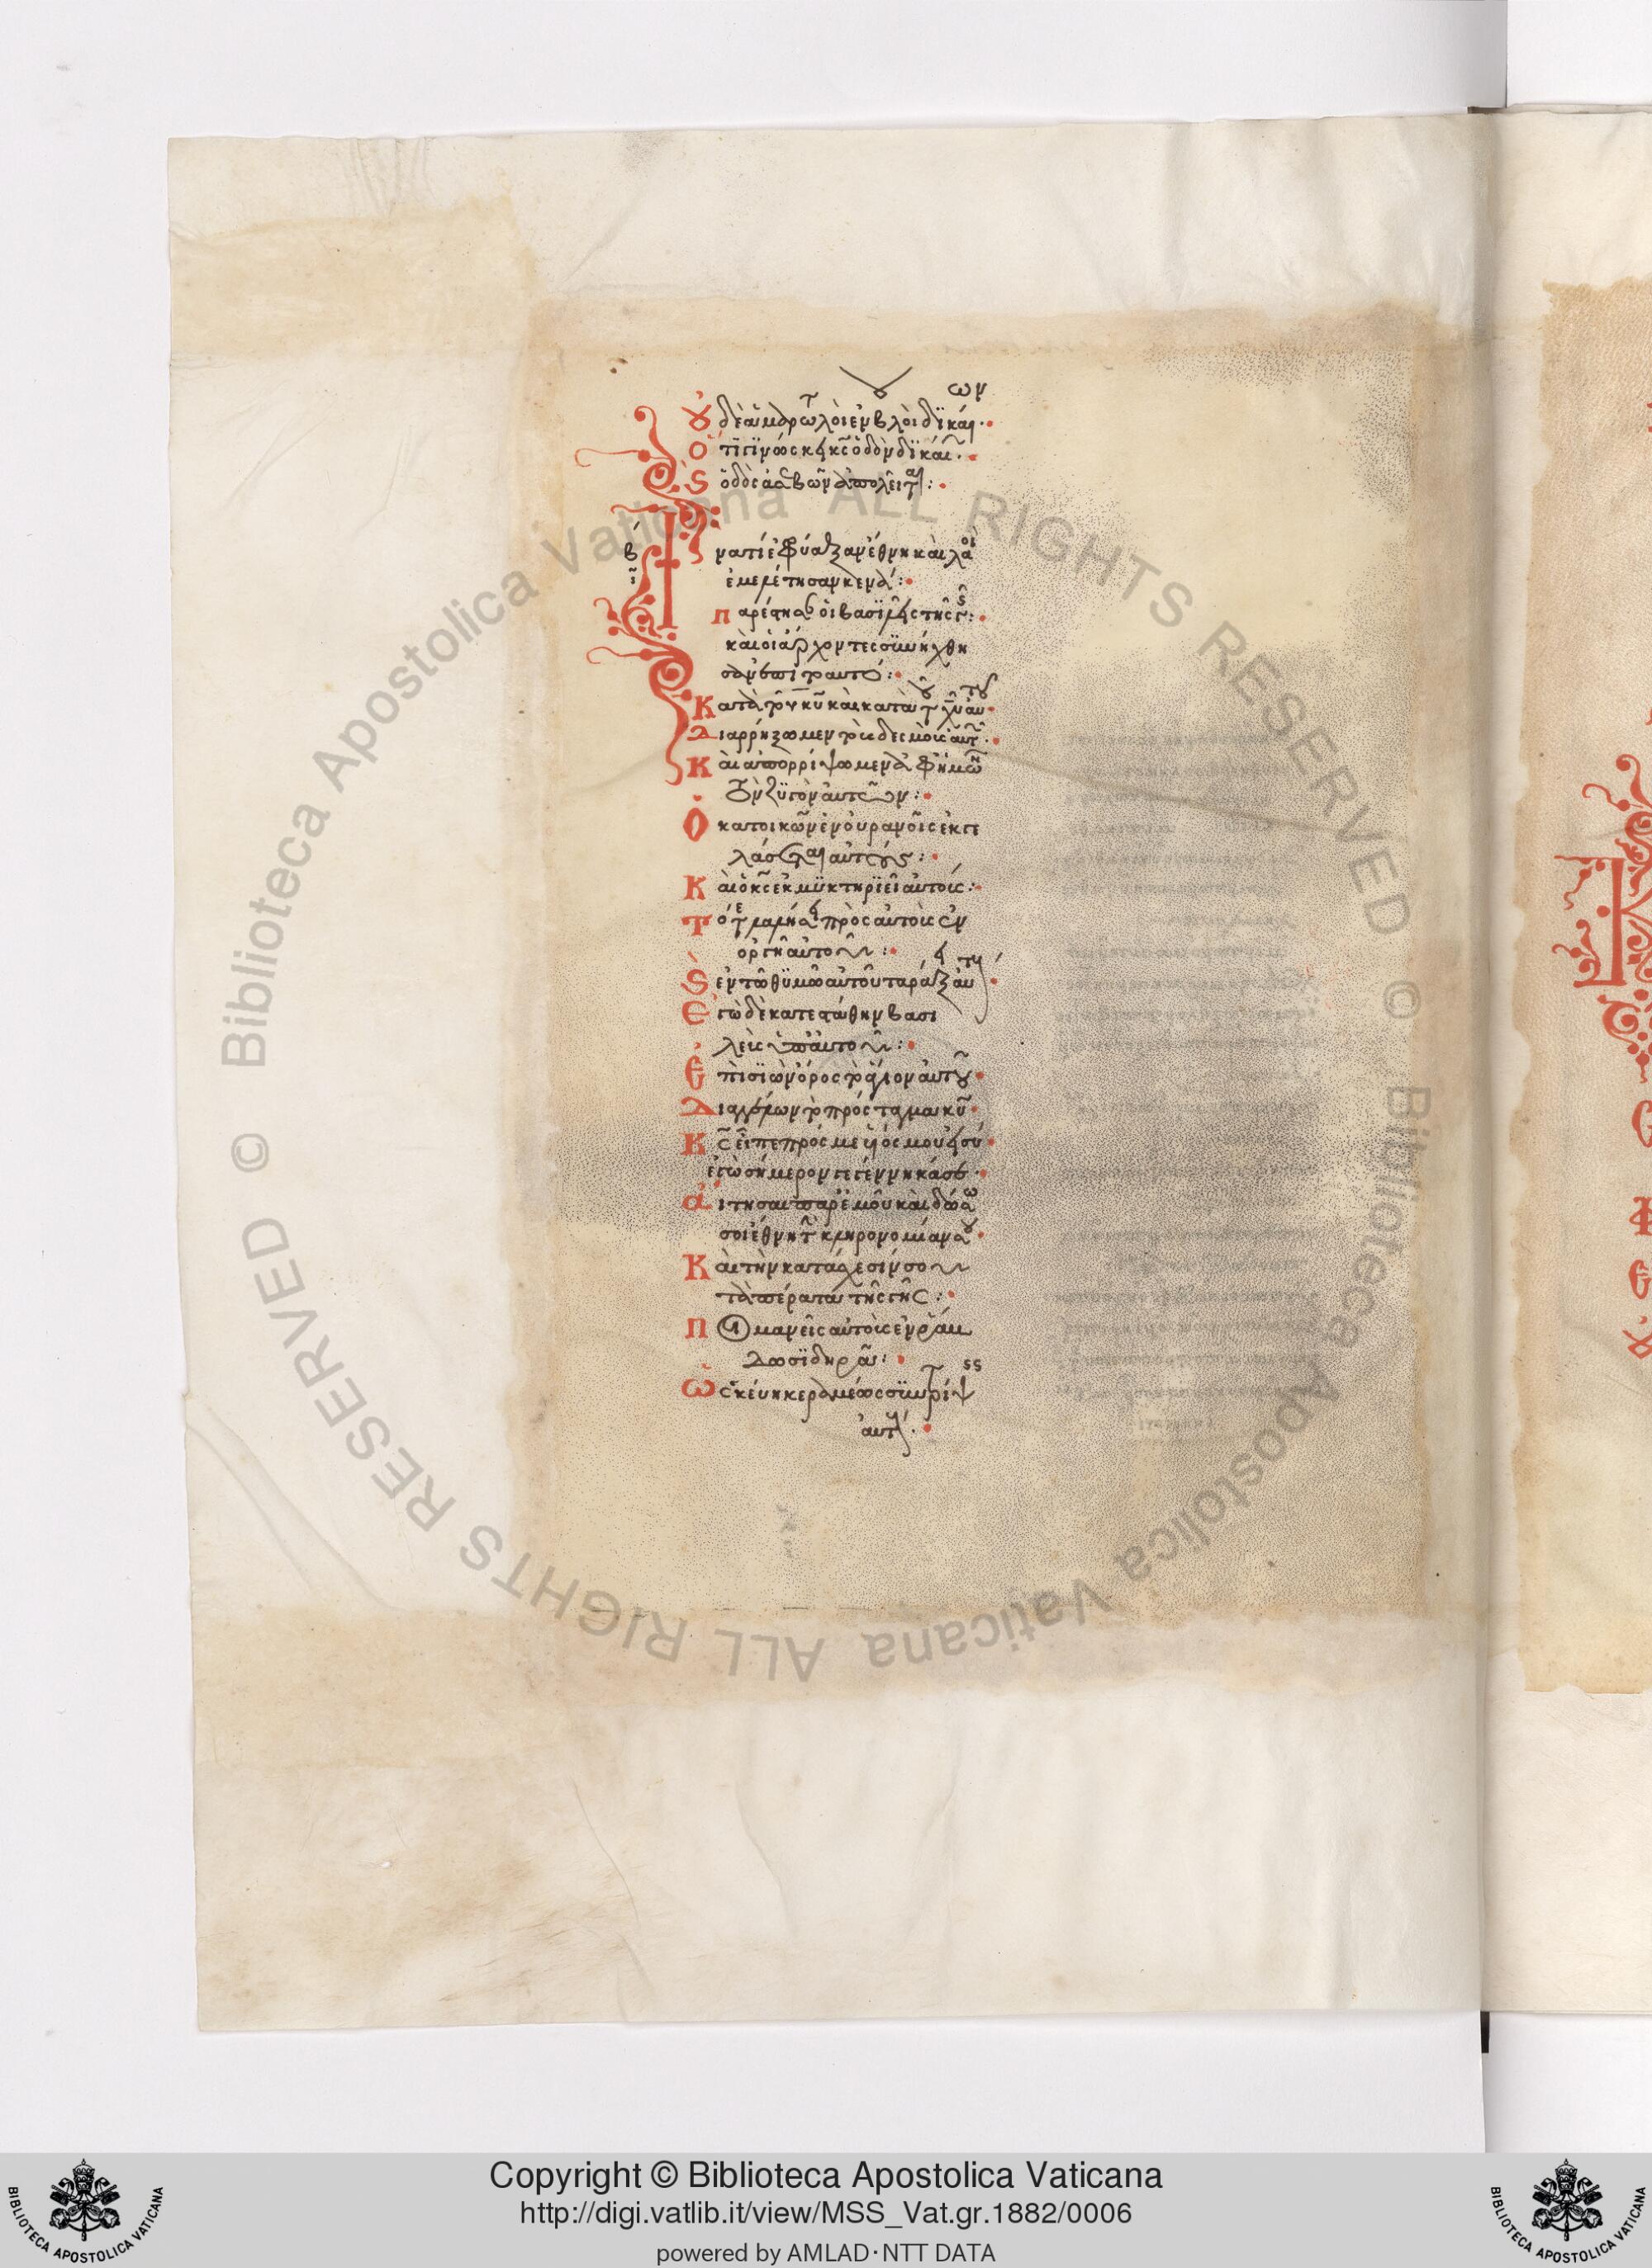 ων
Οὐδὲ ἁμαρτωλοὶ ἐν βουλῇ δικαί
Ὅτι γινώσκει κς ὁδὸν δικαί
ὁδὸς ἀσεβῶν ἀπολεῖται:
β
Ἱνατί ἐφρύαξαν ἔθνη καὶ λαοὶ
ἐμελέτησαν κενά:
Παρέστησαν οἱ βασιλεῖς τῆς γῆς:
καὶ οἱ ἄρχοντες συνήχθη
σαν ἐπι το αυτό:
Κατὰ τοῦ κυ καὶ κατὰ τοῦ χυ αυτου
Διαρρήξωμεν τοὺς δεσμοὺς αυτῶν
Καὶ απορρίψωμεν ἀφ ἡμῶν
τὸν ζυγὸν αὐτῶν:
Ὁ κατοικῶν ἐν οὐρανοῖς ἐκγε
λάσεται αὐτούς:
Καὶ ὁ κς ἐκμυκτηριεῖ αὐτοὺς:
Τότε λαλήσει πρὸς αὐτοὺς ἐν
οργῆ αὐτοῦ:
ἐν τῶ θυμῶ αὐτοῦ ταράξει αυτούς
Ἐγὼ δὲ κατεστάθην βασι
λεὺς ὑπ αὐτοῦ:
Ἐπὶ σιὼν ὄρος τὸ ἅγιον αὐτοῦ
Διαγγέλων τὸ πρόσταγμα κυ
Κς εἶπε πρός με υἱός μου εἶ σύ
ἐγὼ σήμερον γεγέννηκά σε
Αἴτησαι παρ ἐμοῦ καὶ δώσω
σοι ἔθνη τὴν κληρονομίαν σου
Καὶ τὴν κατάσχεσίν σου
τὰ πέρατα τῆς γῆς:
Ποιμανεῖς αὐτοὺς ἐν ράβ
δω σιδηρᾶ:
Ὡς σκεύη κεραμέως συντρίψεις
αὐτούς
© Biblioteca Apostolica Vaticana ALL RIGHTS RESERVED © Biblioteca Apostolica Vaticana ALL RIGHTS RESERVED
Copyright © Biblioteca Apostolica Vaticana
http://digi.vatlib.it/view/MSS_Vat.gr.1882/0006
powered by AMLAD·NTT DATA
BIBLIOTECA APOSTOLICA VATICANA
BIBLIOTECA APOSTOLICA VATICANA